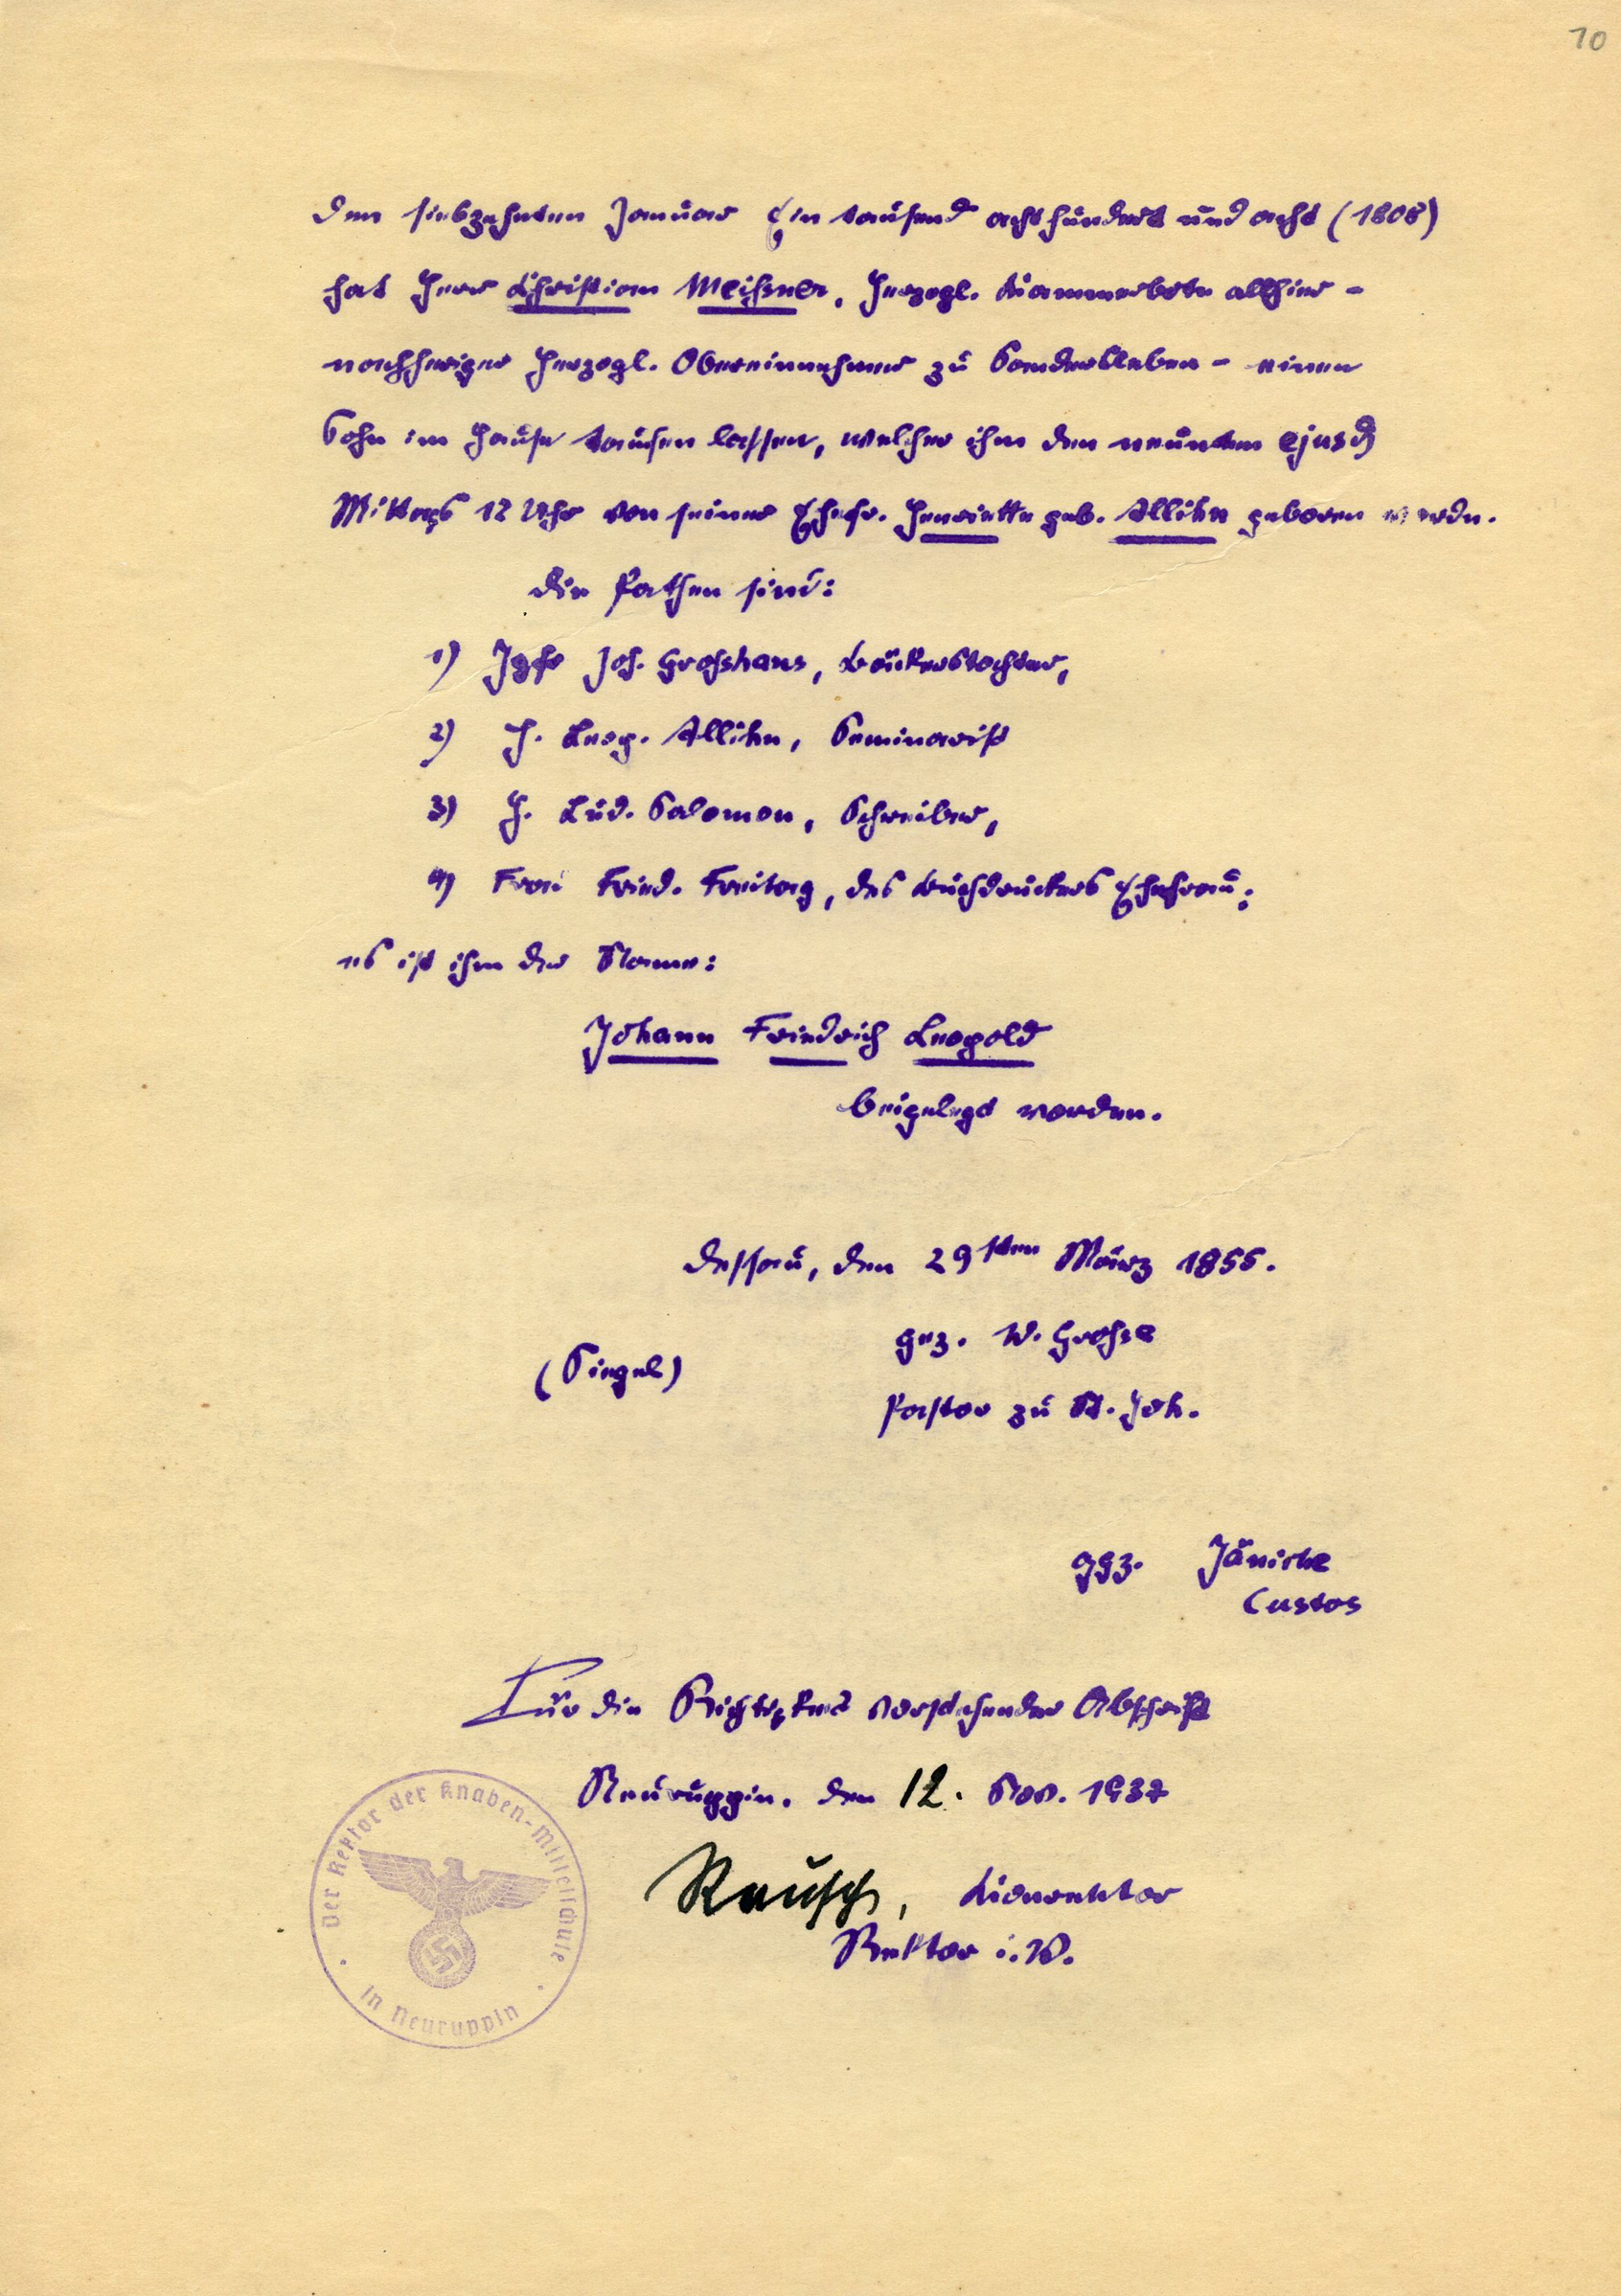 10
Den siebzehnten Januar Ein tausend acht hundert und acht (1808)
hat Herr Christian Meißner, Herzogl. Kammerbote allhier -
nachheriger Herzogl. Obereinnehmer zu Sandersleben - einen
Sohn im Hause taufen lassen, welcher ihm den neunten ejusd
Mittags 12 Uhr von seiner Ehefr. Henriette geb. Allihn geboren worden.
Die Pathen sind:
1) Jgfr Joh. Großhans, Bäckerstochter,
2) H. Leop. Allihn, Seminarist
3) H. Lud. Salomon, Schreiber,
4) Frau Fried. Freitag, des Buchdruckers Ehefrau;
es ist ihm der Name:
Johann Friedrich Leopold
beigelegt worden.
Dessau, den 29sten März 1855.
gez. W. Grohse
(Siegel)
Pastor zu St. Joh.
ggz. Jänicke
Custos
Für die Richtigkeit vorstehender Abschrift
Neuruppin, den 12. Nov. 1937
Rausch, Konrektor
Rektor i.V.
Der Rektor der Knaben-Mittelschule
in Neuruppin